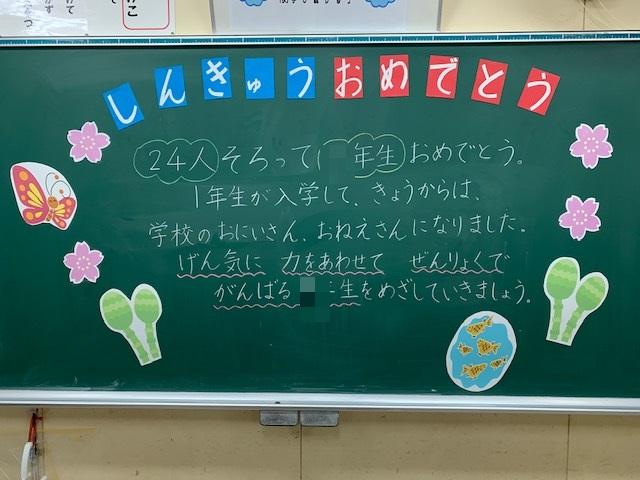 しんきゅうおめでとう
24人そろって 年生おめでとう。
1年生が入学して、きょうからは、
学校のおにいさん、おねえさんになりました。
げん気に 力をあわせて ぜんりょくで
がんばる 生をめざしていきましょう。